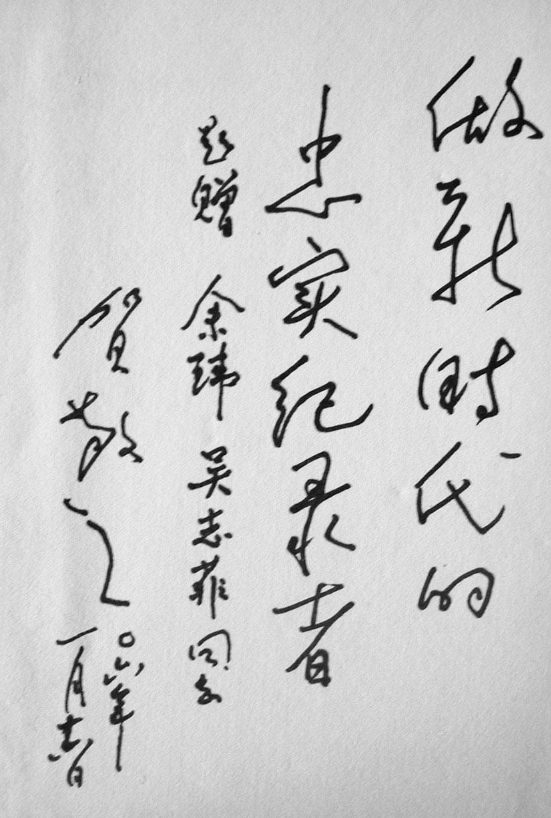 做新时代的
忠实纪录者
题赠 余玮 吴志菲 同志
贺敬之
〇六年
一月廿日